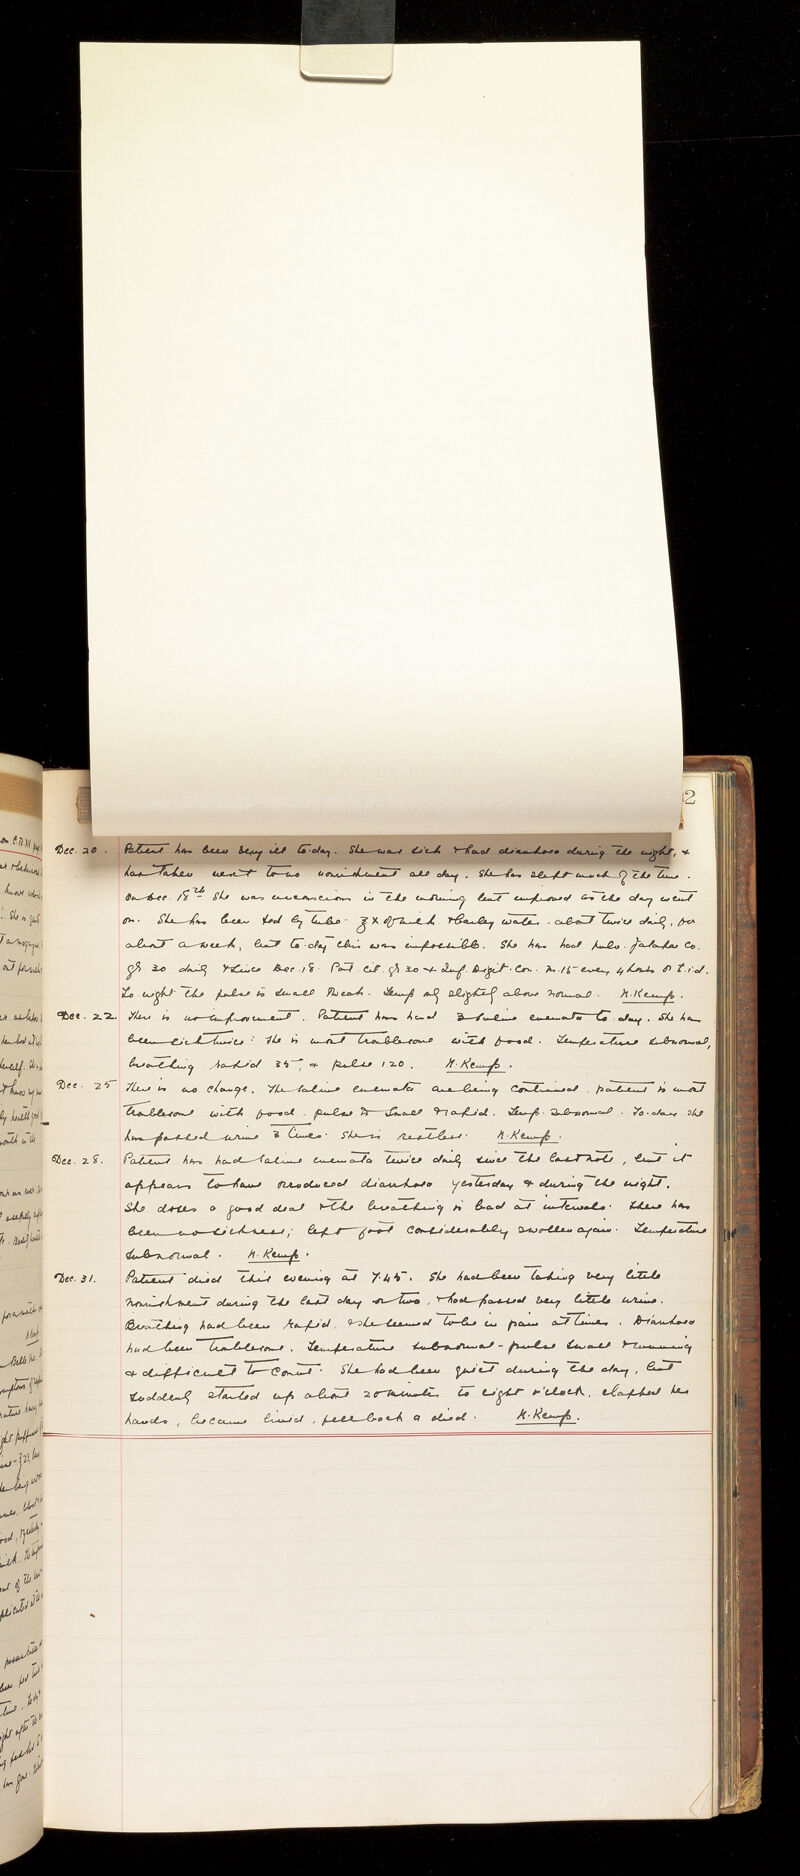 2
Dec. 20. Patient has been very ill to-day. She was sick & had diarrhoea during the night, &
has taken next to no nourishment all day. She has slept much of the time.
On Dec. 18th she was unconscious in the morning but improved as the day went
on. She has been fed by tube - ℥x of milk & barley water - about twice daily, for
about a week, but to-day this was impossible. She has had pulv. jalapae co.
gr. 30 daily & since Dec. 18. Pot. cit. gr 30 & Inf. Digit. Con. m. 15 every 4 hours or t.i.d.
To night the pulse is small & weak. Temp only slightly above normal. N. Kemp.
Dec. 22. There is no improvement. Patient has had 3 saline enemata to-day. She has
been sick twice. She is most troublesome with food. Temperature subnormal,
breathing rapid 35, & pulse 120. N. Kemp.
Dec. 25 There is no change. The saline enemata are being continued. patient is most
troublesome with food. pulse is small & rapid. Temp. subnormal. To-day she
has passed urine 3 times. She is restless. N. Kemp.
Dec. 28. Patient has had saline enemata twice daily since the last note, but it
appears to have produced diarrhoea yesterday & during the night.
She dozes a good deal & the breathing is bad at intervals. There has
been no sickness; left foot considerably swollen again. Temperature
subnormal. N. Kemp.
Dec. 31. Patient died this evening at 7.45. She had been taking very little
nourishment during the last day or two, & had passed very little urine.
Breathing had been rapid, & she seemed to be in pain at times. Diarrhoea
had been troublesome. Temperature subnormal - pulse small & running
& difficult to count. She had been quiet during the day, but
suddenly started up about 20 minutes to eight o'clock, clapped her
hands, became livid, fell back & died. N. Kemp.